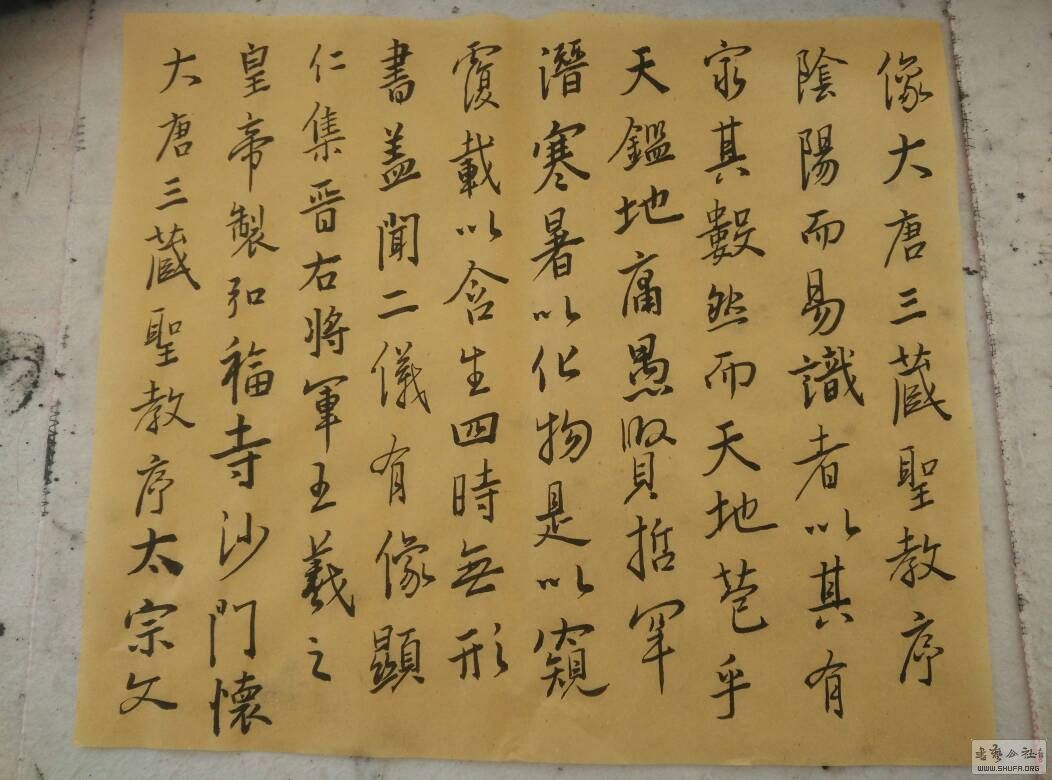 大唐三藏聖教序太宗文
皇帝製弘福寺沙門懷
仁集晋右將軍王羲之
書蓋聞二儀有像顯
覆載以含生四時無形
潛寒暑以化物是以窺
天鑑地庸愚賢哲罕
窮其數然而天地苞乎
陰陽而易識者以其有
像大唐三藏聖教序
书艺公社
WWW.SHUFA.ORG